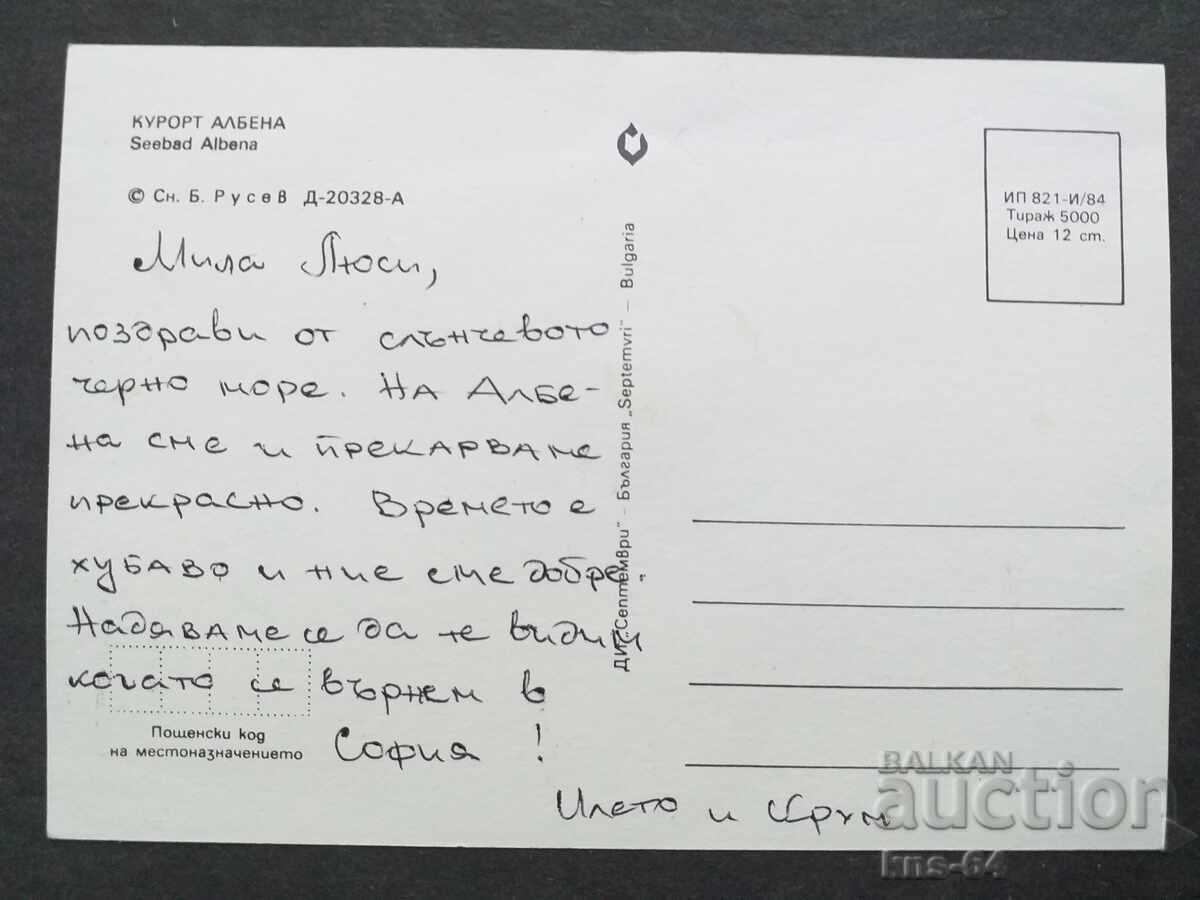 КУРОРТ АЛБЕНА
Seebad Albena
© Сн. Б. Русев Д-20328-А
Мила Люси,
поздрави от слънчевото
черно море. На Албе-
на сме и прекарваме
прекрасно. Времето е
хубаво и ние сме добре.
Надяваме се да те видим
когато се върнем в
София !
Илето и Крум
Пощенски код
на местоназначението
ДИ „Септември" – България „Septemvri" – Bulgaria
ИП 821-И/84
Тираж 5000
Цена 12 ст.
BALKAN
auction
kns-64